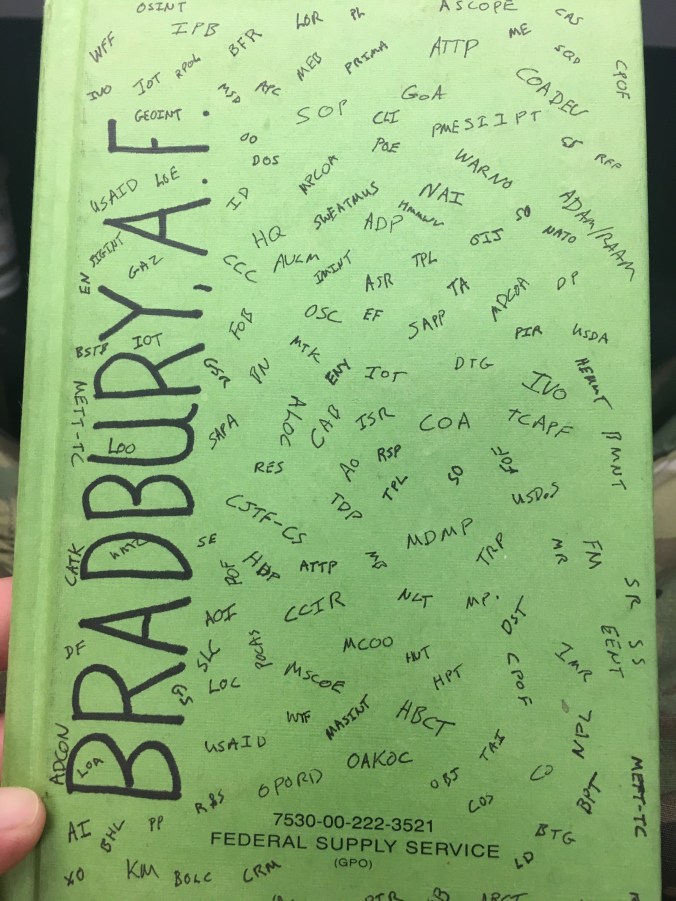 OSINT
IPB
LOR
PL
ASCOPE
CAS
WFF
BFR
MEB
PRIMA
ATTP
ME
SQD
CPOF
IVO
IOT
RPOL
MSD
GOA
COADEV
GEOINT
SOP
CLI
PMESIIPT
DOS
POE
SS
RFP
USAID
LOE
ID
MPCOA
WARNO
SWEATMUS
NAI
HMMWV
ADP
SO
NATO
ADAM/RAAM
SIGINT
HQ
GIJ
EN
GAZ
CCC
AUCM
IMINT
TPL
ASR
TA
MDCOA
DP
FOB
OSC
EF
SAPP
PIR
USDA
BSTB
IOT
GSR
BN
MTK
ENY
IOT
DTG
IVO
HEMMT
LOO
SAPA
ALOC
CAB
ISR
COA
TCAPF
BMNT
RES
AO
RSP
TPL
SO
USDOS
CJTF-CS
TDP
MDMP
TRP
CATK
SE
ATTP
MR
FM
SR
AOI
CCIR
NLT
MP.
DST
DF
SLC
POCAS
MCOO
HVT
IMR
EENT
SS
LOC
MSCOE
HPT
CPOF
ADCON
WTF
MASINT
HBCT
NPL
LOA
USAID
OAKOC
TAI
OPORD
OBJ
CO
BPT
METT-TC
R&S
COS
7530-00-222-3521
FEDERAL SUPPLY SERVICE
(GPO)
AI
BHL
PP
BTG
LD
XO
KM
BOLC
CRM
BRADBURY, A. F.